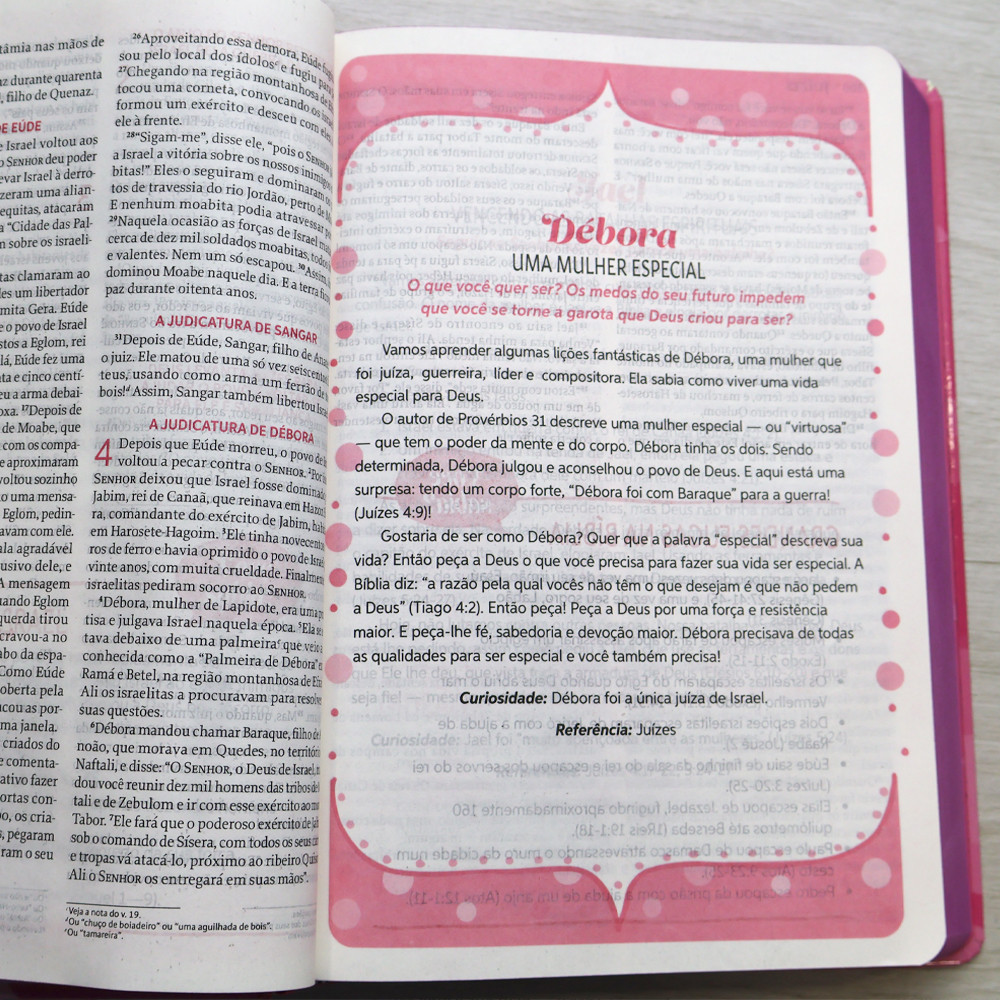 tâmia nas mãos de
az durante quarenta
, filho de Quenaz.
DE EÚDE
e Israel voltou aos
o SENHOR deu poder
evar Israel à derro-
zeram uma alian-
equitas, atacaram
a “Cidade das Pal-
n sobre os israeli-
tas clamaram ao
les um libertador
mita Gera. Eúde
e o povo de Israel
stos a Eglom, rei
lá, Eúde fez uma
ta e cinco centí-
eu a arma debai-
oxa. ¹⁷Depois de
de Moabe, que
com os compa-
e aproximaram
voltou sozinho
o uma mensa-
Eglom, pedin-
avam com ele.
ala agradável
usivo dele, e
A mensagem
uando Eglom
querda tirou
cravou-a no
abo da espa-
Como Eúde
oberta pela
cou as por-
ma janela.
criados do
e comenta-
ativo fazer
ortas con-
o, os cria-
s, pegaram
ram o seu
²⁶Aproveitando essa demora, Eúde
sou pelo local dos ídolos e fugiu
²⁷Chegando na região montanhosa de
tocou uma corneta, convocando os
formou um exército e desceu com eles
ele à frente.
²⁸“Sigam-me”, disse ele, “pois o SENHOR
a Israel a vitória sobre os nossos inimigos
bitas!” Eles o seguiram e dominaram os
tos de travessia do rio Jordão, perto de
E nenhum moabita podia atravessar
²⁹Naquela ocasião as forças de Israel
cerca de dez mil soldados moabitas, todos
e valentes. Nem um só escapou. ³⁰Assim,
dominou Moabe naquele dia. E a terra
paz durante oitenta anos.
A JUDICATURA DE SANGAR
³¹Depois de Eúde, Sangar, filho de
o juiz. Ele matou de uma só vez
teus, usando como arma um ferrão de
bois!ᵈ Assim, Sangar também libertou
A JUDICATURA DE DÉBORA
4 Depois que Eúde morreu, o povo de
voltou a pecar contra o SENHOR.
SENHOR deixou que Israel fosse
Jabim, rei de Canaã, que reinava em
ra, comandante do exército de Jabim,
em Harosete-Hagoim. ³Ele tinha
ros de ferro e havia oprimido o povo de
vinte anos, com muita crueldade. Finalmente
israelitas pediram socorro ao SENHOR.
⁴Débora, mulher de Lapidote, era uma
tisa e julgava Israel naquela época. ⁵Ela
tava debaixo de uma palmeira que
conhecida como a “Palmeira de Débora”
Ramá e Betel, na região montanhosa de
Ali os israelitas a procuravam para
suas questões.
⁶Débora mandou chamar Baraque, filho de
noão, que morava em Quedes, no território
Naftali, e disse: “O SENHOR, o Deus de Israel,
dou você reunir dez mil homens das tribos de
tali e de Zebulom e ir com esse exército ao
Tabor. ⁷Ele fará que o poderoso exército de
sob o comando de Sísera, com todos os seus
e tropas vá atacá-lo, próximo ao ribeiro
Ali o SENHOR os entregará em suas mãos”.
Veja a nota do v. 19.
Ou “chuço de boiadeiro” ou “uma aguilhada de bois”.
Ou “tamareira”.
Débora
UMA MULHER ESPECIAL
O que você quer ser? Os medos do seu futuro impedem
que você se torne a garota que Deus criou para ser?
Vamos aprender algumas lições fantásticas de Débora, uma mulher que
foi juíza, guerreira, líder e compositora. Ela sabia como viver uma vida
especial para Deus.
O autor de Provérbios 31 descreve uma mulher especial — ou “virtuosa”
— que tem o poder da mente e do corpo. Débora tinha os dois. Sendo
determinada, Débora julgou e aconselhou o povo de Deus. E aqui está uma
surpresa: tendo um corpo forte, “Débora foi com Baraque” para a guerra!
(Juízes 4:9)!
Gostaria de ser como Débora? Quer que a palavra “especial” descreva sua
vida? Então peça a Deus o que você precisa para fazer sua vida ser especial. A
Bíblia diz: “a razão pela qual vocês não têm o que desejam é que não pedem
a Deus” (Tiago 4:2). Então peça! Peça a Deus por uma força e resistência
maior. E peça-lhe fé, sabedoria e devoção maior. Débora precisava de todas
as qualidades para ser especial e você também precisa!
Curiosidade: Débora foi a única juíza de Israel.
Referência: Juízes